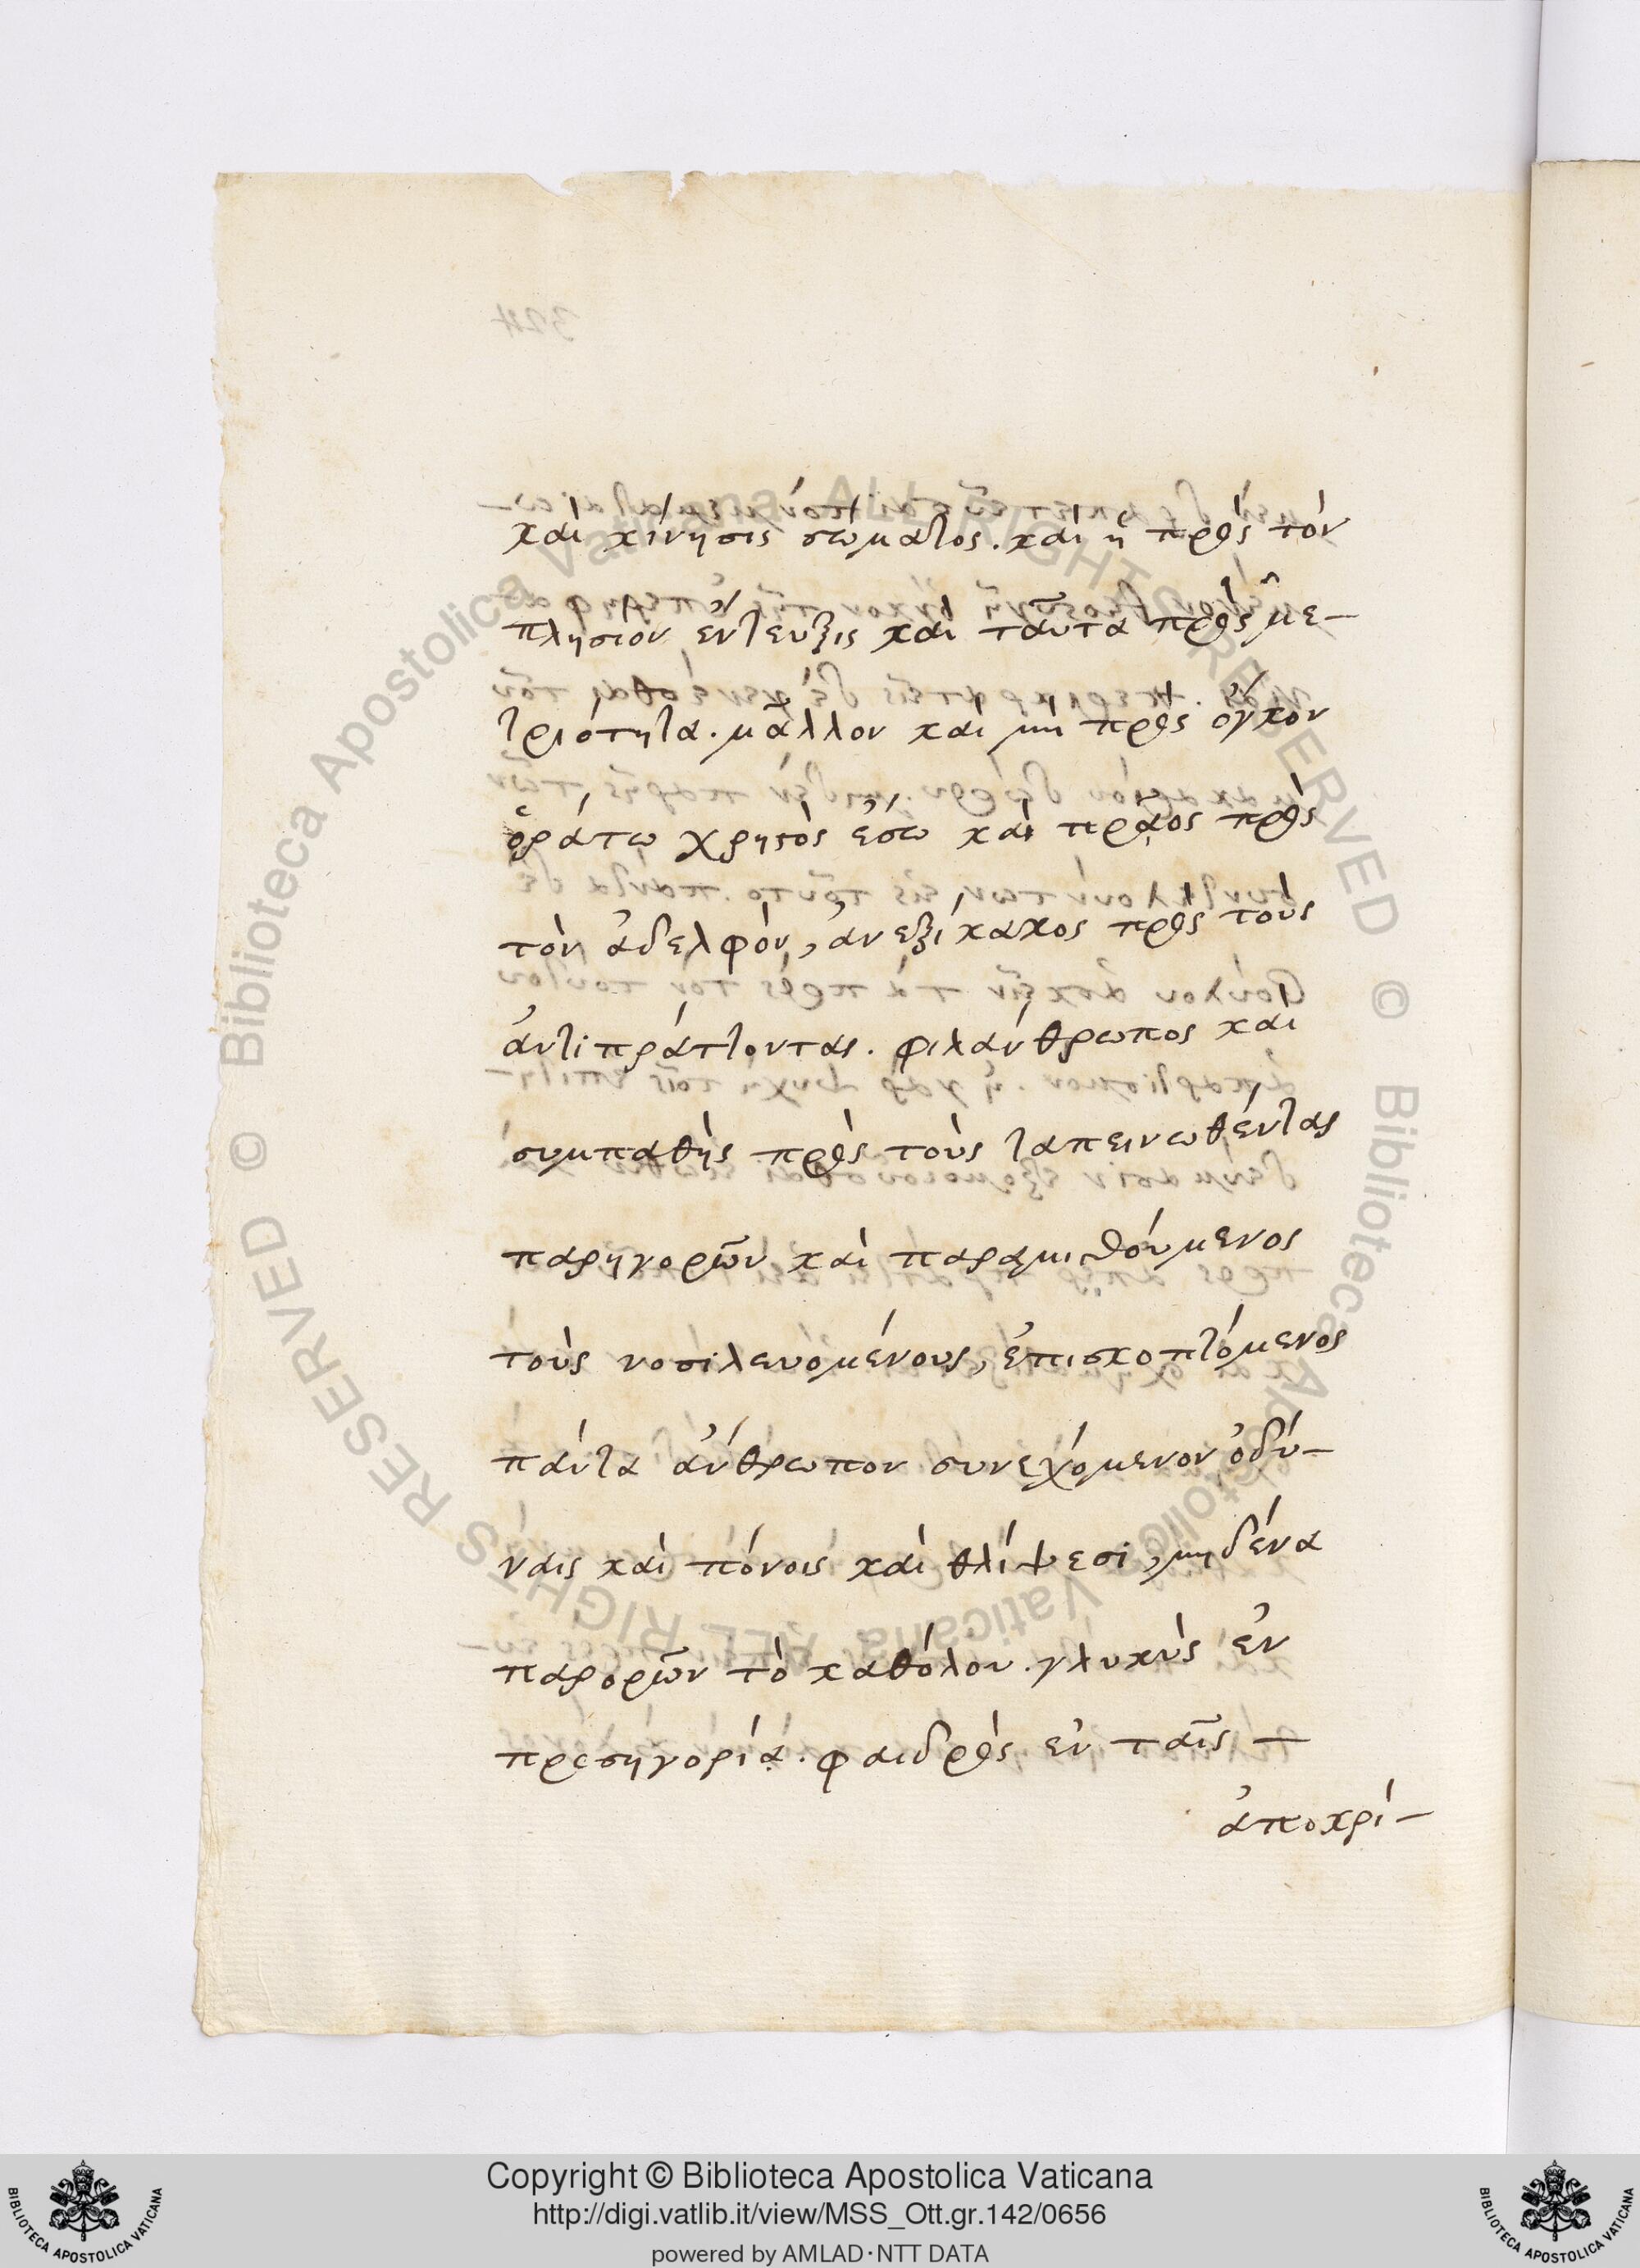 καὶ κίνησις σώματος. καὶ ἡ πρὸς τὸν
πλησίον ἔντευξις καὶ ταῦτα πρὸς με-
τριότητα. μᾶλλον καὶ μὴ πρὸς ὄγκον
ὁράτω χρηστὸς ἔσω καὶ πρᾷος πρὸς
τὸν ἀδελφὸν, ἀνεξίκακος πρὸς τοὺς
ἀντιπράττοντας. φιλάνθρωπος καὶ
συμπαθὴς πρὸς τοὺς ταπεινωθέντας
παρηγορῶν καὶ παραμιθούμενος
τοὺς νοσιλευομένους, ἐπισκοπτόμενος
πάντα ἄνθρωπον συνεχόμενον ὀδύ-
ναις καὶ πόνοις καὶ θλίψεσι, μηδένα
παρορῶν τὸ καθόλου. γλυκὺς ἐν
προσηγορίᾳ. φαιδρὸς ἐν ταῖς
ἀποκρί-
Copyright © Biblioteca Apostolica Vaticana
http://digi.vatlib.it/view/MSS_Ott.gr.142/0656
powered by AMLAD·NTT DATA
BIBLIOTECA APOSTOLICA VATICANA
BIBLIOTECA APOSTOLICA VATICANA